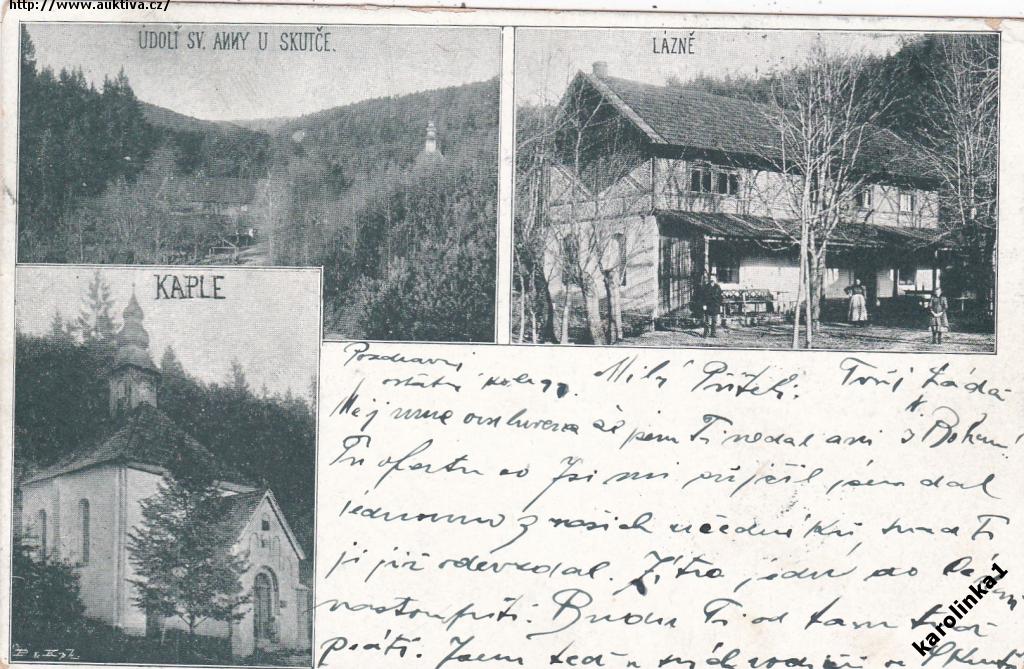 http://www.auktiva.cz/
ÚDOLÍ SV. ANNY U SKUTČE.
LÁZNĚ
KAPLE
Pozdravuj
ostatní kolegy. Milý Příteli. Tvůj Láďa
Měj mne omluvena až jsem Ti nedal ani s Bohem!
Tu co Jsi mi půjčil jsem dal
jednomu z našich učedníků, snad Ti
ji již odevzdal. Zítra jedu do
nastoupiti. Budu Ti od tam tudy
psáti. Jsem teď u svých rodičů
karolinka1